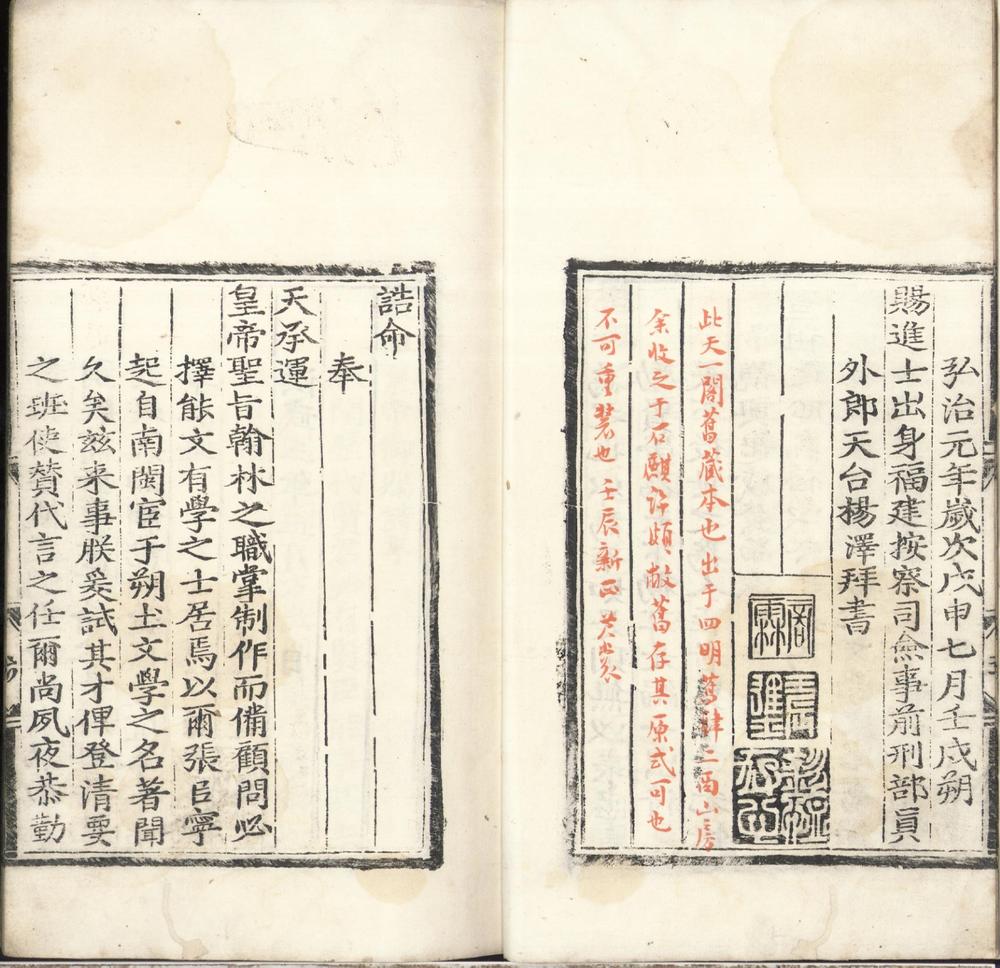 弘治元年歲次戊申七月壬戌朔
賜進士出身福建按察司僉事前刑部員
外郎天台楊澤拜書
此天一閣舊藏本也出于四明舊肆二酉山房
余收之于石麒許頗敝舊存其原式可也
不可重裝也壬辰新正
誥命
奉
天承運
皇帝聖旨翰林之職掌制作而備顧問必
擇能文有學之士居焉以爾張㠯寧
起自南閩宦于朔土文學之名著聞
久矣茲来事朕爰試其才俾登清要
之班使贊代言之任爾尚夙夜恭勤